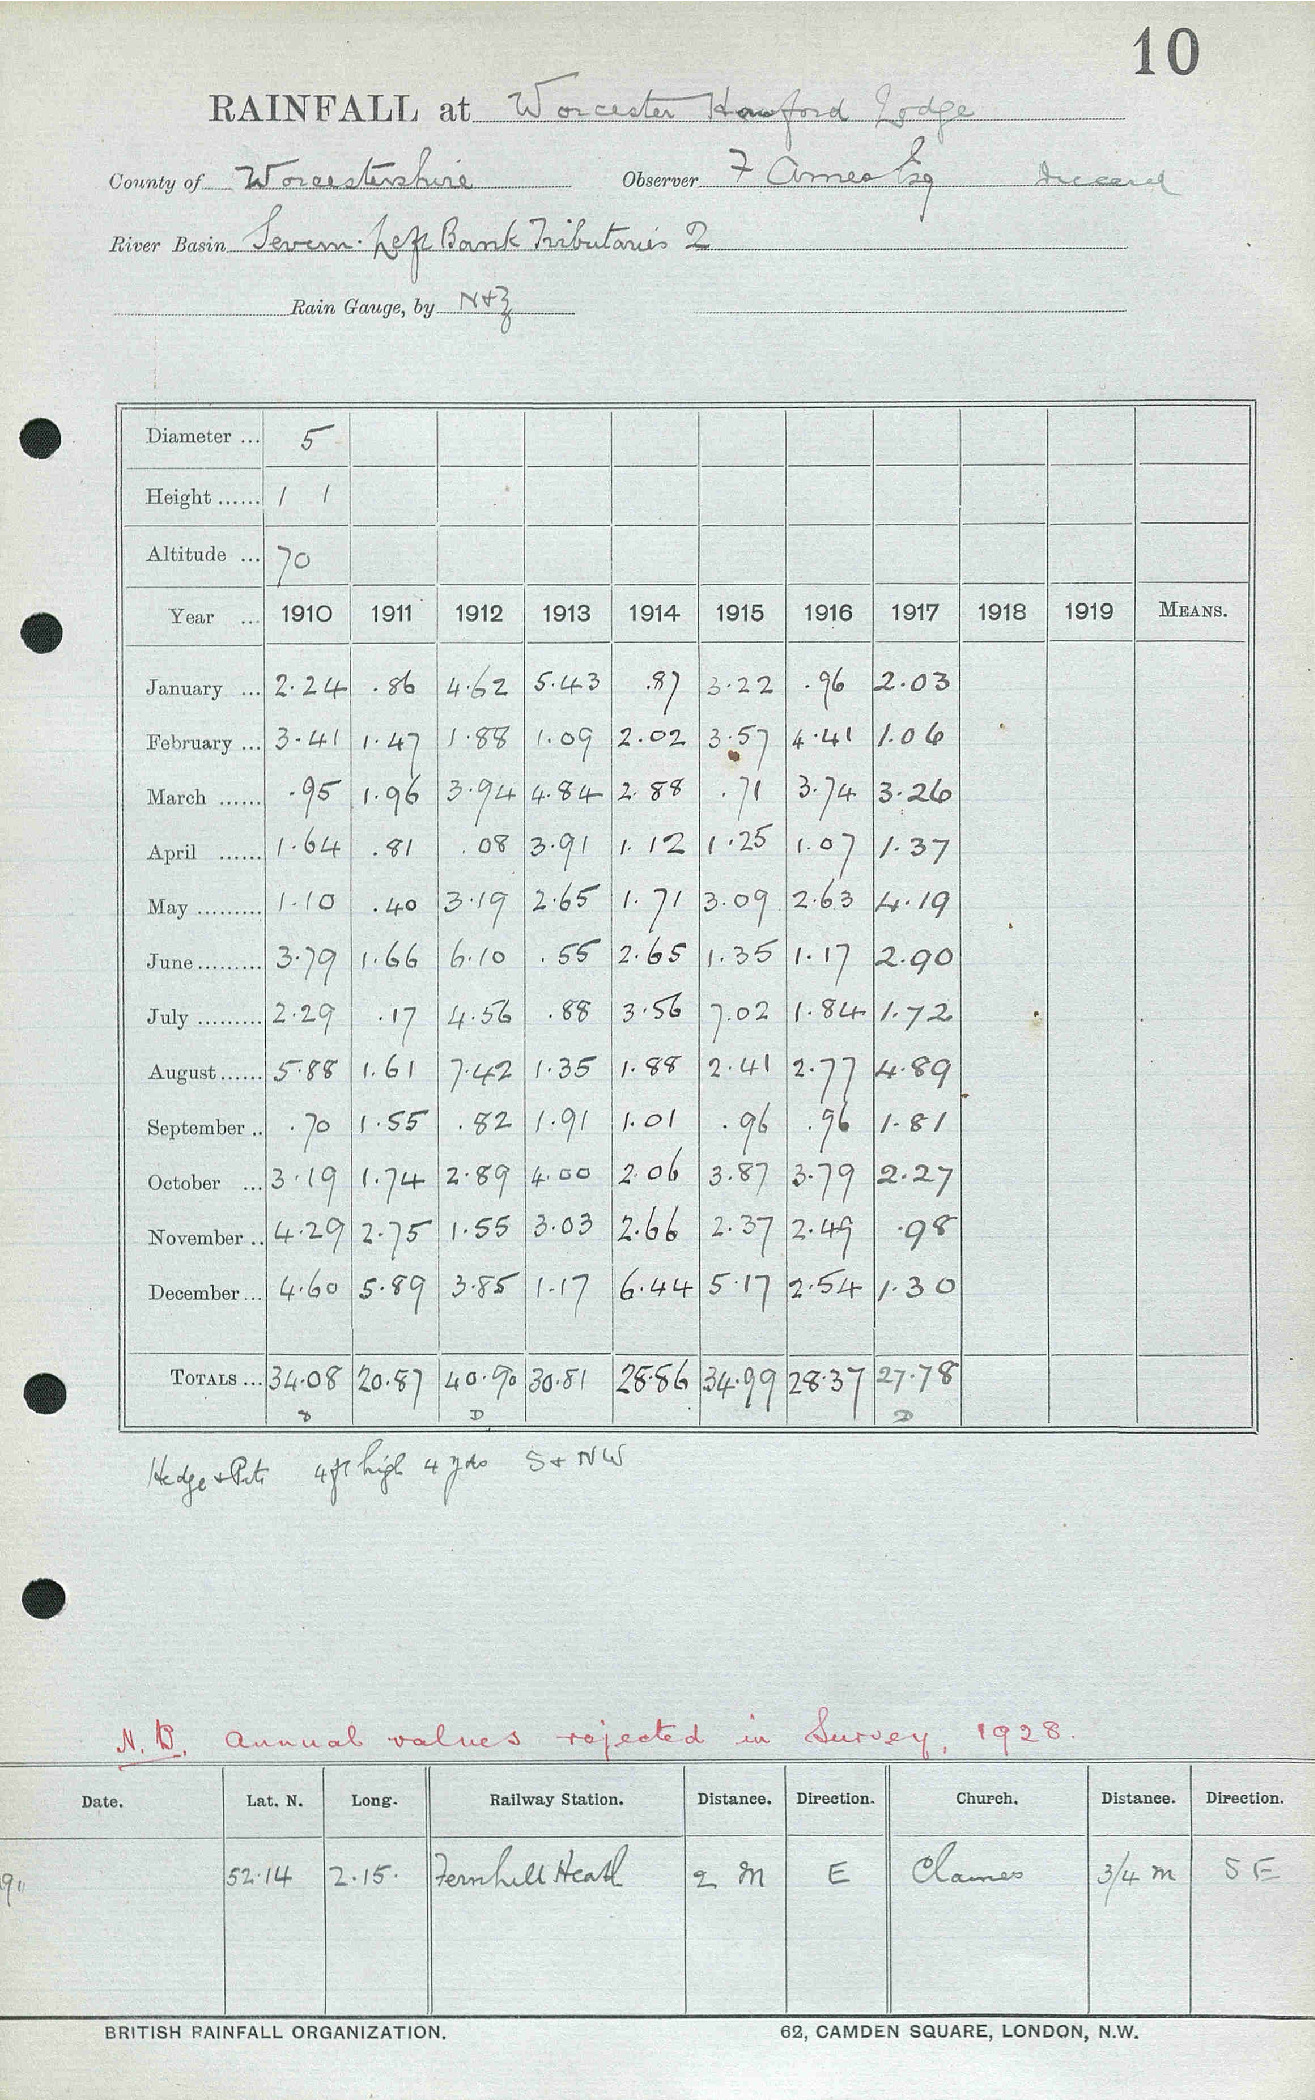 10
RAINFALL at Worcester Hawford Lodge
County of Worcestershire Observer F Ames Esq
River Basin Severn. Left Bank Tributaries 2
Rain Gauge, by N+Z
Diameter ... 5
Height ...... 1 1
Altitude ... 70
Year ... 1910 1911 1912 1913 1914 1915 1916 1917 1918 1919 MEANS.
January ... 2.24 .86 4.62 5.43 .87 3.22 .96 2.03
February ... 3.41 1.47 1.88 1.09 2.02 3.57 4.41 1.06
March ...... .95 1.96 3.94 4.84 2.88 .71 3.74 3.26
April ...... 1.64 .81 .08 3.91 1.12 1.25 1.07 1.37
May ......... 1.10 .40 3.19 2.65 1.71 3.09 2.63 4.19
June ......... 3.79 1.66 6.10 .55 2.65 1.35 1.17 2.90
July ......... 2.29 .17 4.56 .88 3.56 7.02 1.84 1.72
August ...... 5.88 1.61 7.42 1.35 1.88 2.41 2.77 4.89
September .. .70 1.55 .82 1.91 1.01 .96 .96 1.81
October ... 3.19 1.74 2.89 4.00 2.06 3.87 3.79 2.27
November .. 4.29 2.75 1.55 3.03 2.66 2.37 2.49 .98
December ... 4.60 5.89 3.85 1.17 6.44 5.17 2.54 1.30
TOTALS ... 34.08 20.87 40.90 30.81 28.86 34.99 28.37 27.78
D D
Hedge + 4 ft high 4 yds S + NW
N.B. Annual values rejected in Survey, 1928.
Date. Lat. N. Long. Railway Station. Distance. Direction. Church. Distance. Direction.
52.14 2.15. Fernhill Heath 2 M E Claines 3/4 m S E
BRITISH RAINFALL ORGANIZATION. 62, CAMDEN SQUARE, LONDON, N.W.